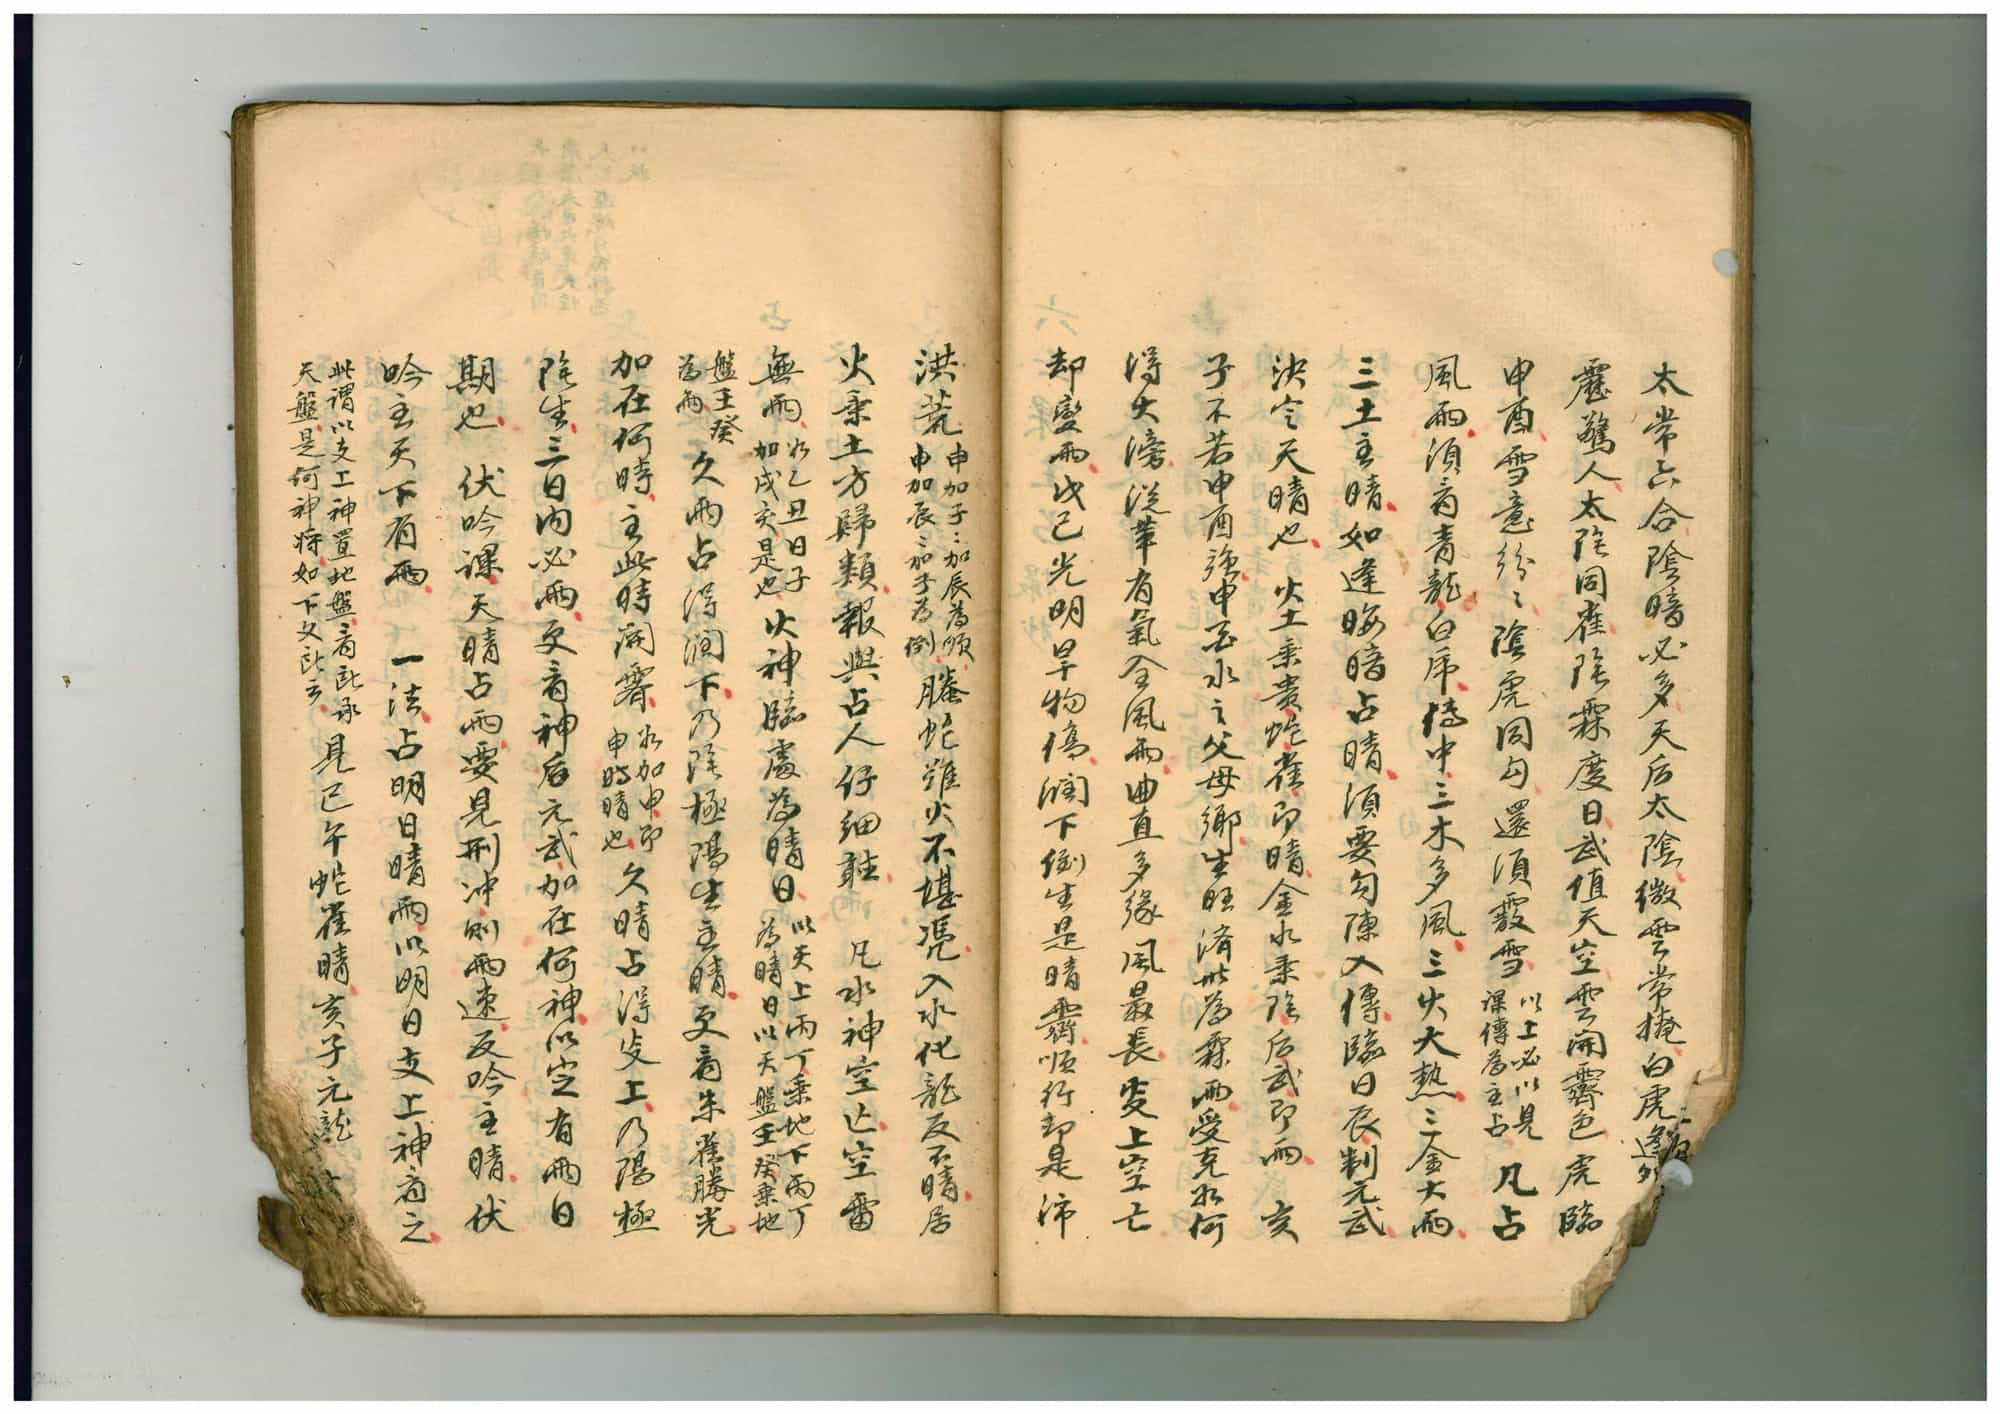 太常六合陰暗必多天后太陰微雲常掩白虎逢
靂驚人太陰同雀陰霖度日武值天空雲開霽色虎臨
申酉雪意紛〻陰虎同勾還須霰雪以上必以見課傳為主占凡占
風雨須看青龍白虎傳中三木多風三火大熱三金大雨
三土主晴如逢晦暗占晴須要勾陳入傳臨日辰制元武
決定天晴也 火土乘貴蛇雀即晴金水乘陰后武即雨 亥
子不若申酉強申為水之父母鄉生旺済此為霖雨受克水何
得大滂從革有氣全風雨曲直多緣風最長炎上空亡
却變雨戊己光明旱物傷潤下倒生是晴霽順行却是沛
洪荒申加子〻加辰為順申加辰〻加子為倒騰蛇雖火不堪凴入水化龍反不晴居
火乘土方歸類報與占人仔細聽 凡水神空亡空雷
無雨如乙丑日子加戌亥是也火神臨處為晴日以天上丙丁乘地下丙丁為晴日以天盤壬癸乘地
盤壬癸為雨久雨占得潤下乃陰極陽生主晴更看朱雀勝光
加在何時主此時開霽如加申即申時晴也久晴占得炎上乃陽極
陰生三日內必雨更看神后元武加在何神以定有雨日
期也 伏吟課天晴占雨要見刑冲則雨速反吟主晴伏
吟主天下有雨 一法占明日晴雨以明日支上神看之
此謂以支上神置地盤看所承天盤是何神將如下文所云見巳午蛇雀晴亥子元龍